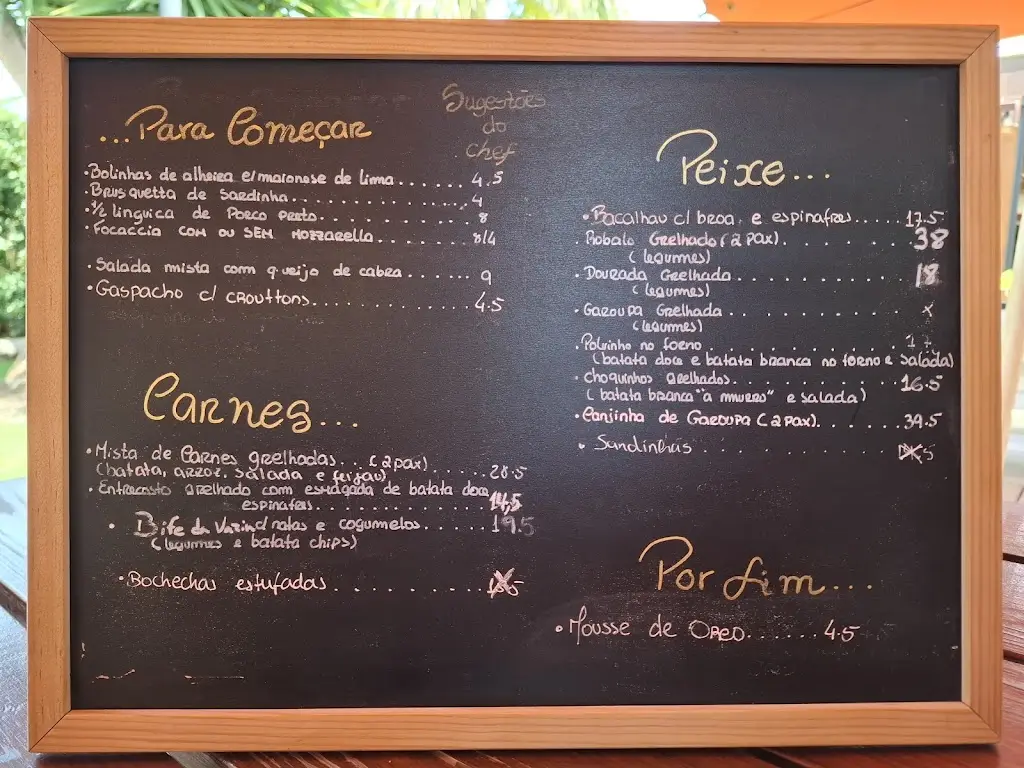 Sugestões
do
chef
...Para Começar
•Bolinhas de alheira c/maionese de lima......4.5
•Brusquetta de Sardinha................4
•½ linguica de Porco preto..............8
•Focaccia COM OU SEM MOZZARELLA.......8/4
•Salada mista com queijo de cabra.......9
•Gaspacho c/ crouttons................4.5
Carnes...
•Mista de Carnes grelhadas... (2pax)
(batata, arroz, salada e feijão)......28.5
•Entrecosto grelhado com esmagada de batata doce
espinafres..................14,5
•Bife da Vazia c/ natas e cogumelos......19.5
(legumes e batata chips)
•Bochechas estufadas...........
Peixe...
•Bacalhau c/ broa e espinafres....17.5
•Robalo Grelhado (2 pax)..........38
(legumes)
•Dourada Grelhada..............18
(legumes)
•Garoupa Grelhada..............x
(legumes)
•Polvinho no forno..............17
(batata doce e batata branca no forno e salada)
•Choquinhos grelhados............16.5
(batata branca "a murro" e salada)
•Canjinha de Garoupa (2pax).......39.5
•Sardinhas................
Por fim...
•Mousse de OREO......4.5